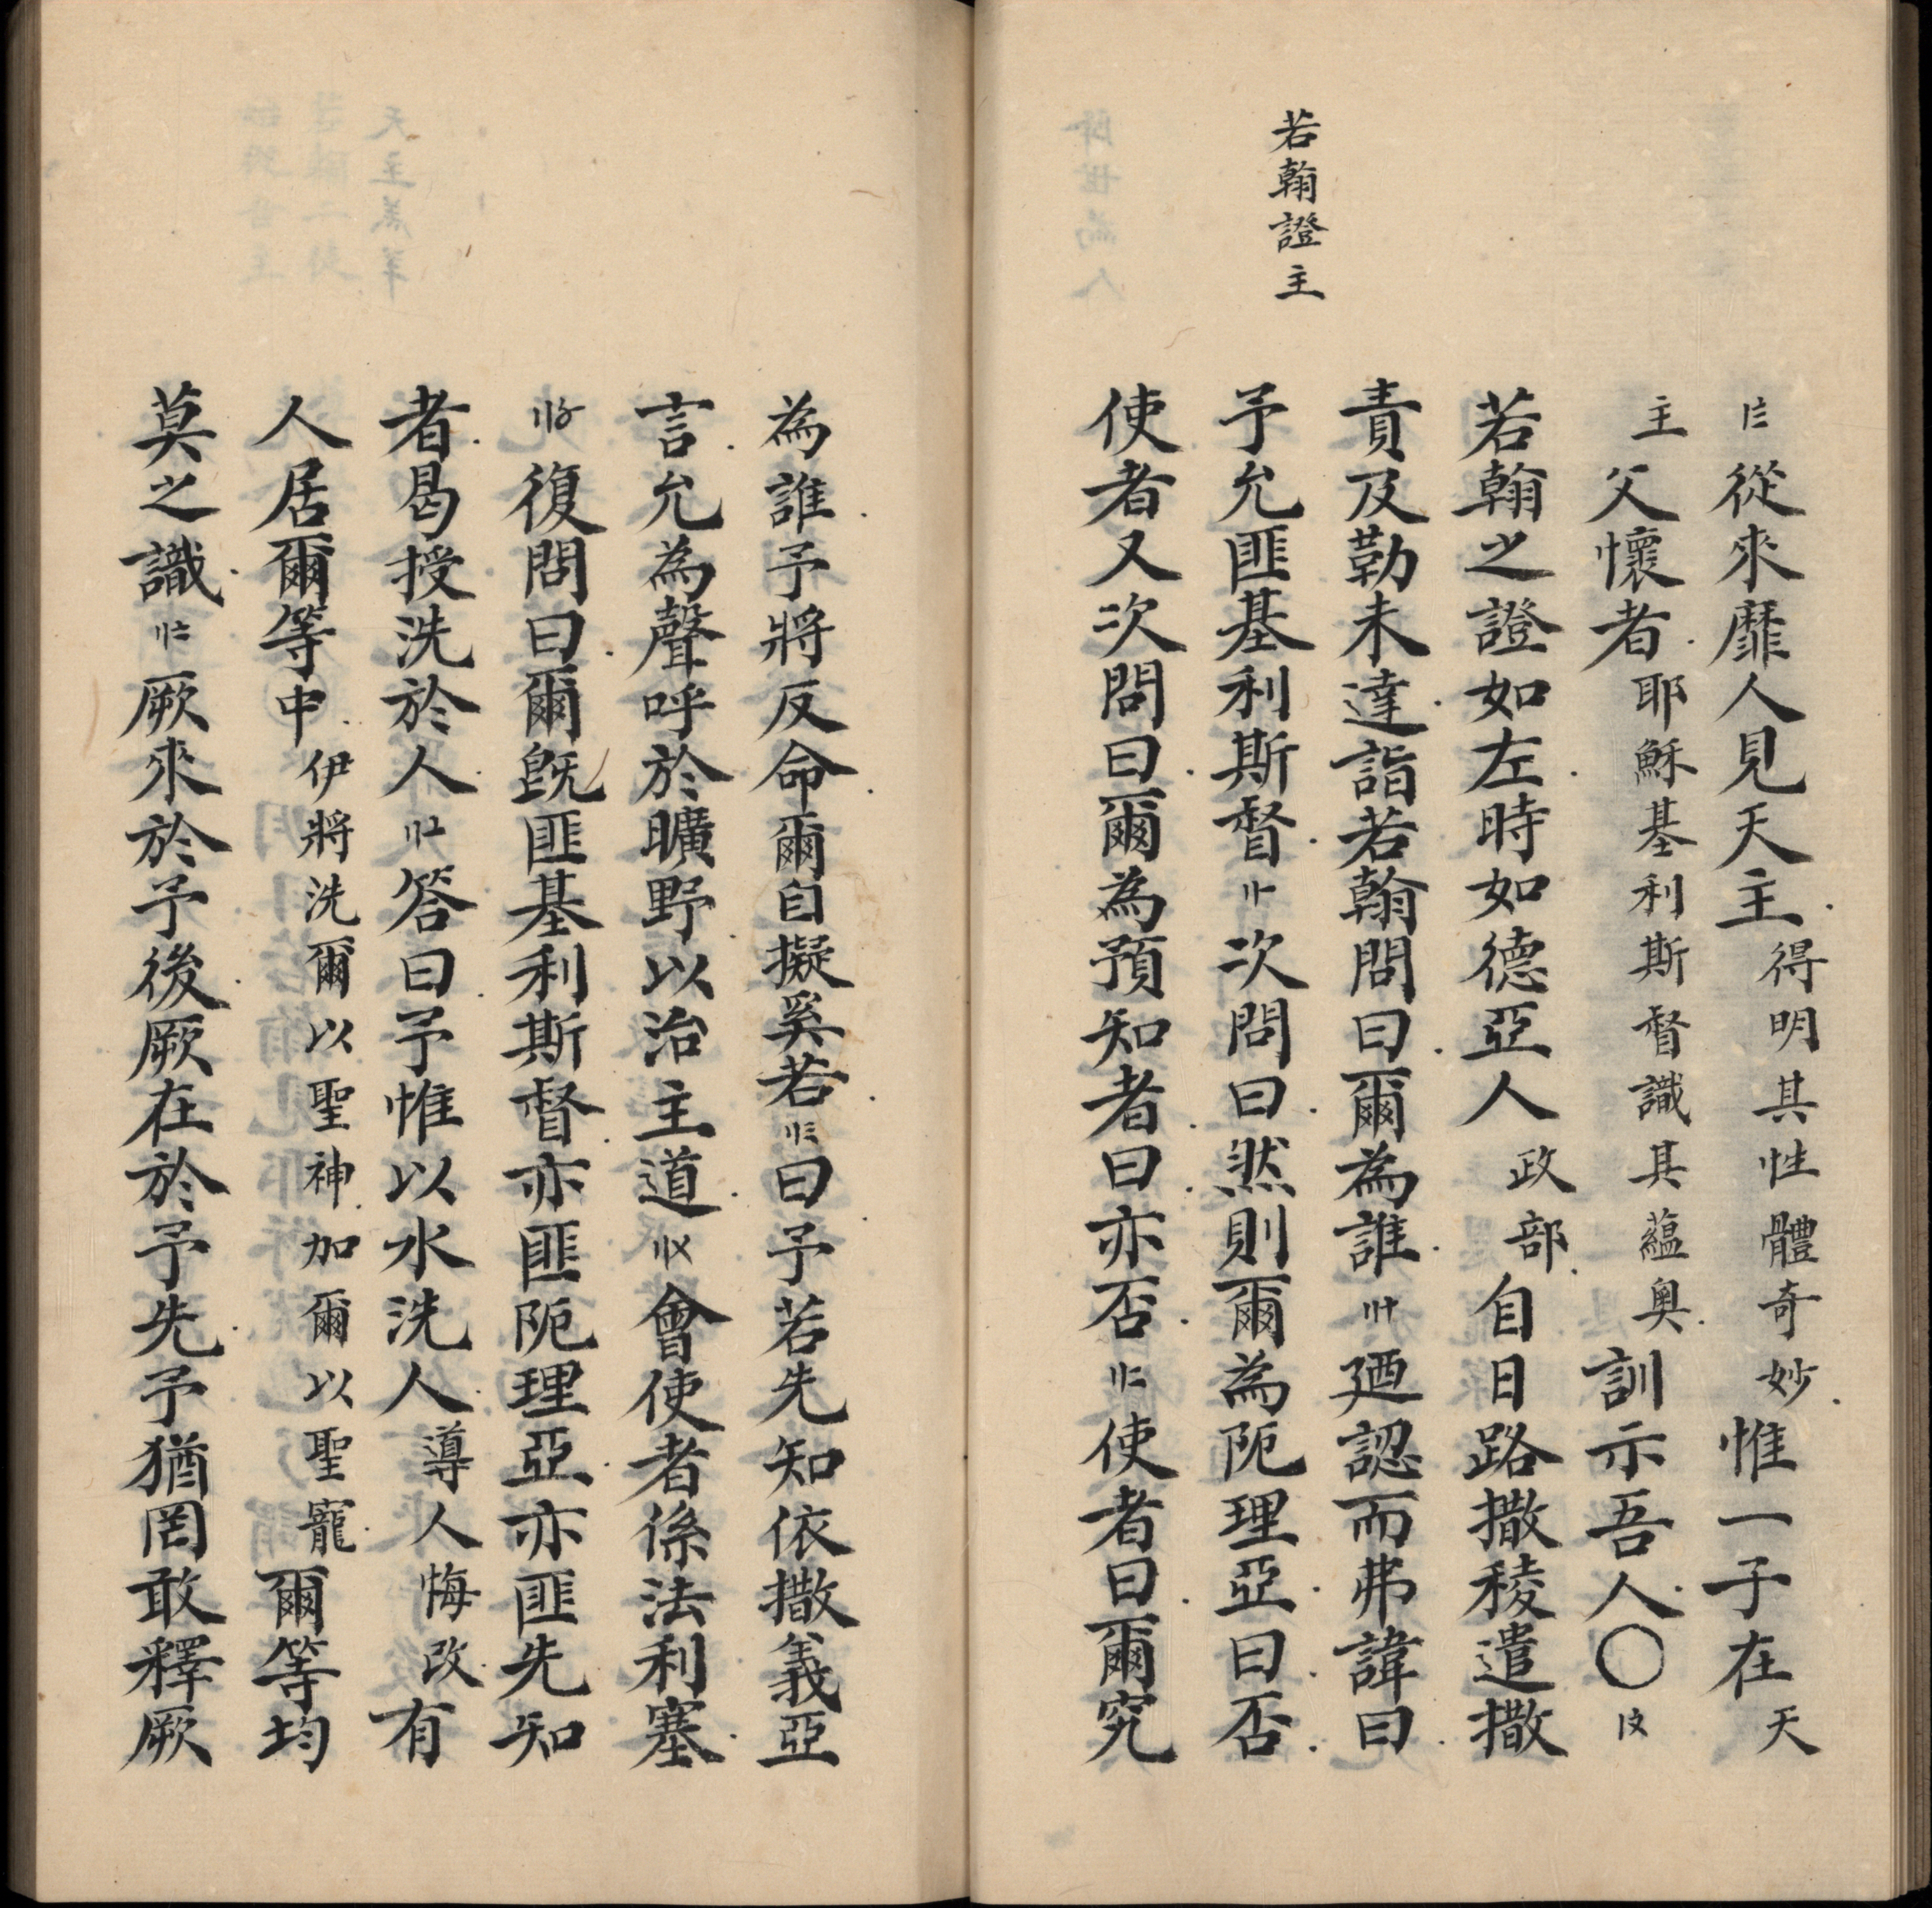 若翰證主
〢三從來靡人見天主得明其性體奇妙惟一子在天
主父懷者耶穌基利斯督識其蘊奥訓示吾人〇
若翰之證如左時如德亞人政部自日路撒稜遣撒
責及勒未達詣若翰問曰爾為誰廼認而弗諱曰
予允匪基利斯督次問曰然則爾為阨理亞曰否
使者又次問曰爾為預知者曰亦否使者曰爾究
為誰予將反命爾自擬奚若曰予若先知依撒義亞
言允為聲呼於曠野以治主道會使者係法利塞
復問曰爾旣匪基利斯督亦匪阨理亞亦匪先知
者曷授洗於人答曰予惟以水洗人導人悔改有
人居爾等中伊將洗爾以聖神加爾以聖寵爾等均
莫之識厥來於予後厥在於予先予猶罔敢釋厥